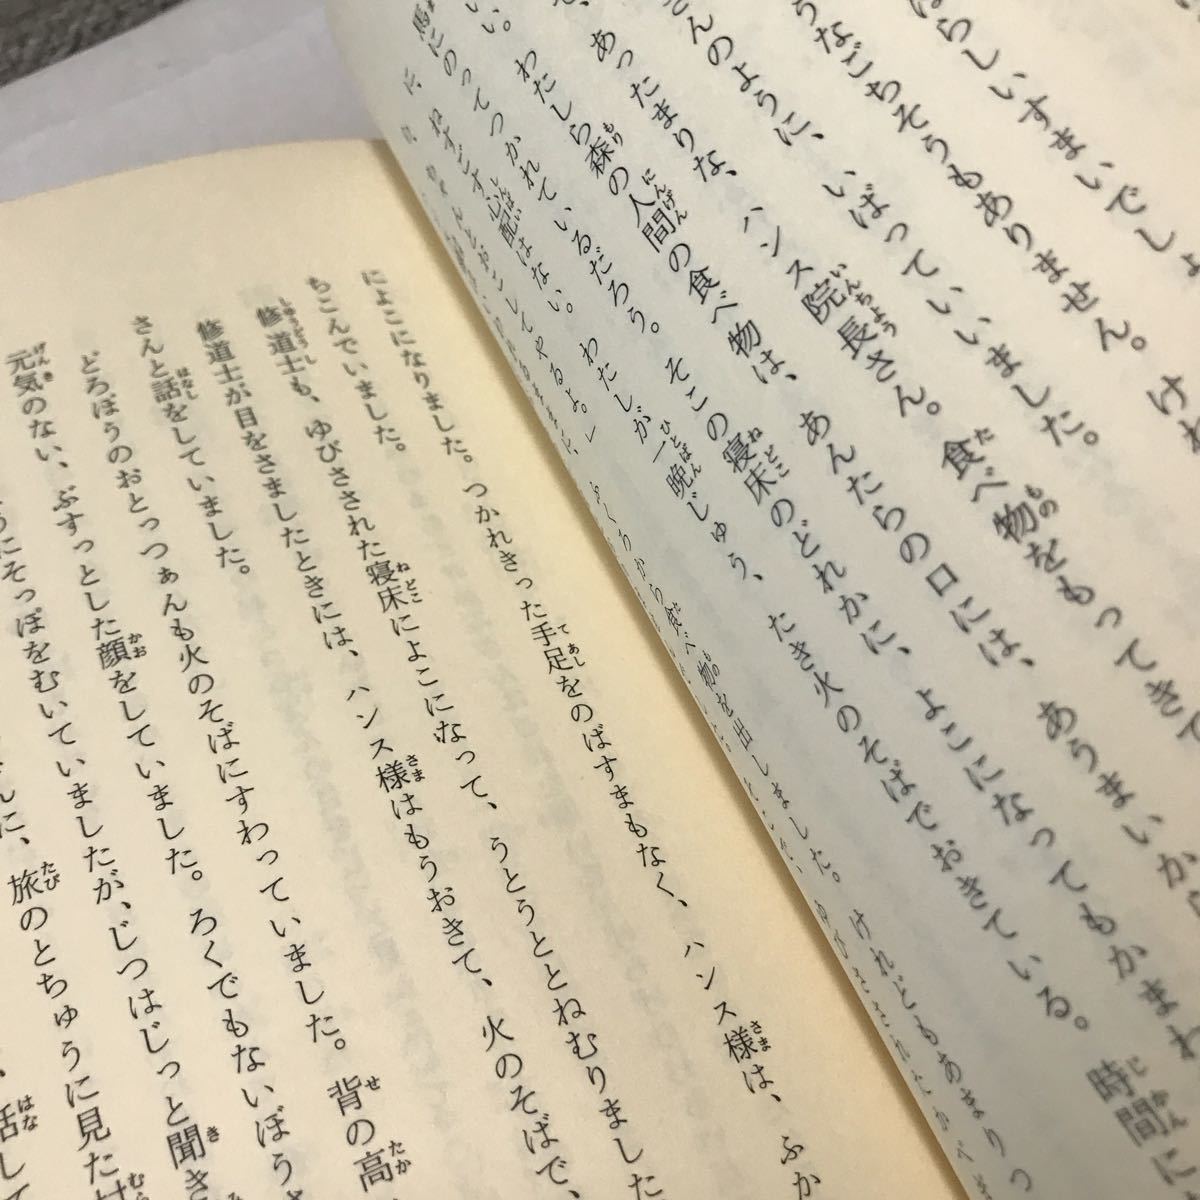 ばらしいすまいでしょ
うなごちそうもありません。けれ
さんのように、いばっていいました。
あったまりな、ハンス院長さん。食べ物をもってきて
い。わたしら森の人間の食べ物は、あんたらの口には、あうまいが
馬にのってつかれているだろう。そこの寝床のどれかに、よこになってもかまわ
ねずに心配はない。わたしが一晩じゅう、たき火のそばでおきている。時間に
してやるよ。」
ふくろから食べ物を出しました。けれどもあまりつ
によこになりました。つかれきった手足をのばすまもなく、ハンス様は、ふか
ちこんでいました。
修道士も、ゆびさされた寝床によこになって、うとうととねむりました
修道士が目をさましたときには、ハンス様はもうおきて、火のそばで、
さんと話をしていました。
どろぼうのおとっつぁんも火のそばにすわっていました。背の高
元気のない、ぶすっとした顔をしていました。ろくでもないぼうさ
うにそっぽをむいていましたが、じつはじっと聞き
に、旅のとちゅうに見た村
話して